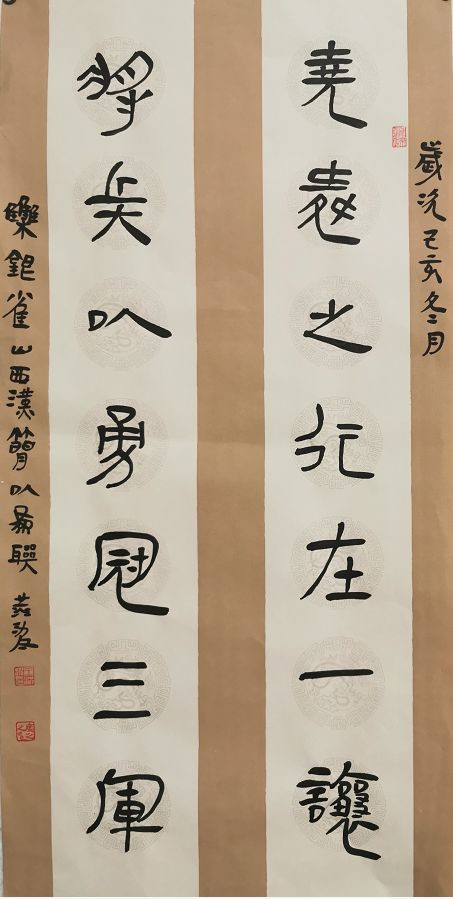 歲次己亥冬月
堯之行在一讓
將兵以勇冠三軍
銀雀山西漢簡以為聯